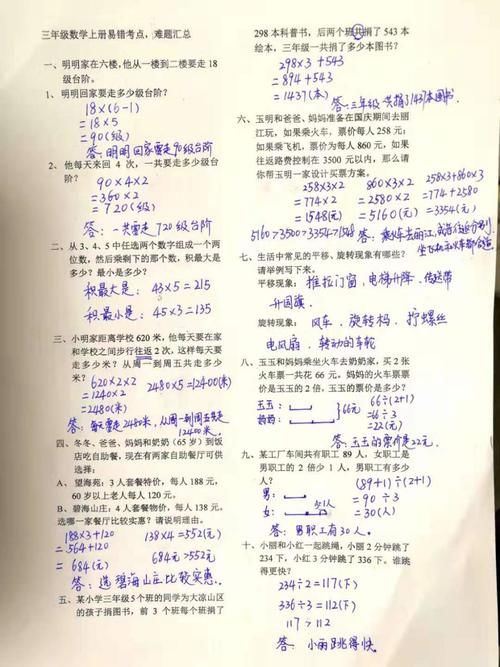 三年级数学上册易错考点，难题汇总
一、明明家在六楼，他从一楼到二楼要走 18
级台阶。
1、明明回家要走多少级台阶？
18×(6-1)
=18×5
=90(级)
答：明明回家要走90级台阶
2、他每天来回 4 次，一共要走多少级台
阶？
90×4×2
=360×2
=720(级)
答：一共要走720级台阶
二、从 3、4、5 中任选两个数字组成一个两
位数，然后乘剩下的那个数，积最大是
多少？最小是多少？
积最大是：43×5=215
积最小是：45×3=135
三、小明家距离学校 620 米，他每天要在家
和学校之间步行往返2 次，这样每天要
走多少米？从周一到周五共走多少
米？
620×2×2 2480×5=12400(米)
=1240×2
=2480(米)
答：每天要走2480米，从周一到周五共走
12400米
四、冬冬、爸爸、妈妈和奶奶（65 岁）到饭
店吃自助餐，现在有两家自助餐厅可供
选择：
A、望海苑：3 人套餐特价，每人 188 元，
60 岁以上老人每人 120 元。
B、碧海山庄：4 人套餐特价，每人 138 元。
选哪一家餐厅比较实惠？请说明理由。
188×3+120 138×4=552(元)
=564+120
=684(元) 684元>552元
答：选碧海山庄比较实惠.
五、某小学三年级 5 个班的同学为大凉山区
的孩子捐图书，前 3 个班每个班捐了
298 本科普书，后两个班共捐了 543 本
绘本，三年级一共捐了多少本图书？
298×3+543
=894+543
=1437(本)
答：三年级共捐了1437本图书
六、玉明和爸爸、妈妈准备在国庆期间去丽
江玩，如果乘火车，票价每人 258 元；
如果乘飞机，票价为每人 860 元，如果
往返路费控制在 3500 元以内，那么请
你帮玉明一家设计买票方案。
258×3×2 860×3×2 258×3+860×3
=774×2 =2580×2 =774+2580
=1548(元) =5160(元) =3354(元)
5160>3500>3354>1548
答：乘火车去丽江,或者往返分别
坐飞机和火车都合适
七、生活中常见的平移、旋转现象有哪些？
请举例写下来。
平移现象：推拉门窗，电梯升降，传送带
升国旗
旋转现象：风车、旋转木马、拧螺丝
电风扇、转动的车轮
八、玉玉和妈妈乘坐火车去奶奶家，买 2 张
火车票一共花 66 元。妈妈的火车票票
价是玉玉的 2 倍，玉玉的票价是多少？
玉玉： 66元 66÷(2+1)
妈妈： =66÷3
=22(元)
答：玉玉的票价是22元.
九、某工厂车间共有职工 89 人，女职工是
男职工的 2 倍少 1 人，男职工有多少
人？ (89+1)÷(2+1)
男： =90÷3
女： 少1人 =30(人)
答：男职工有30人.
十、小丽和小红一起跳绳，小丽 2 分钟跳了
234 下，小红 3 分钟跳了 336 下。谁跳
得更快？
234÷2=117(下)
336÷3=112(下)
117>112
答：小丽跳得快.